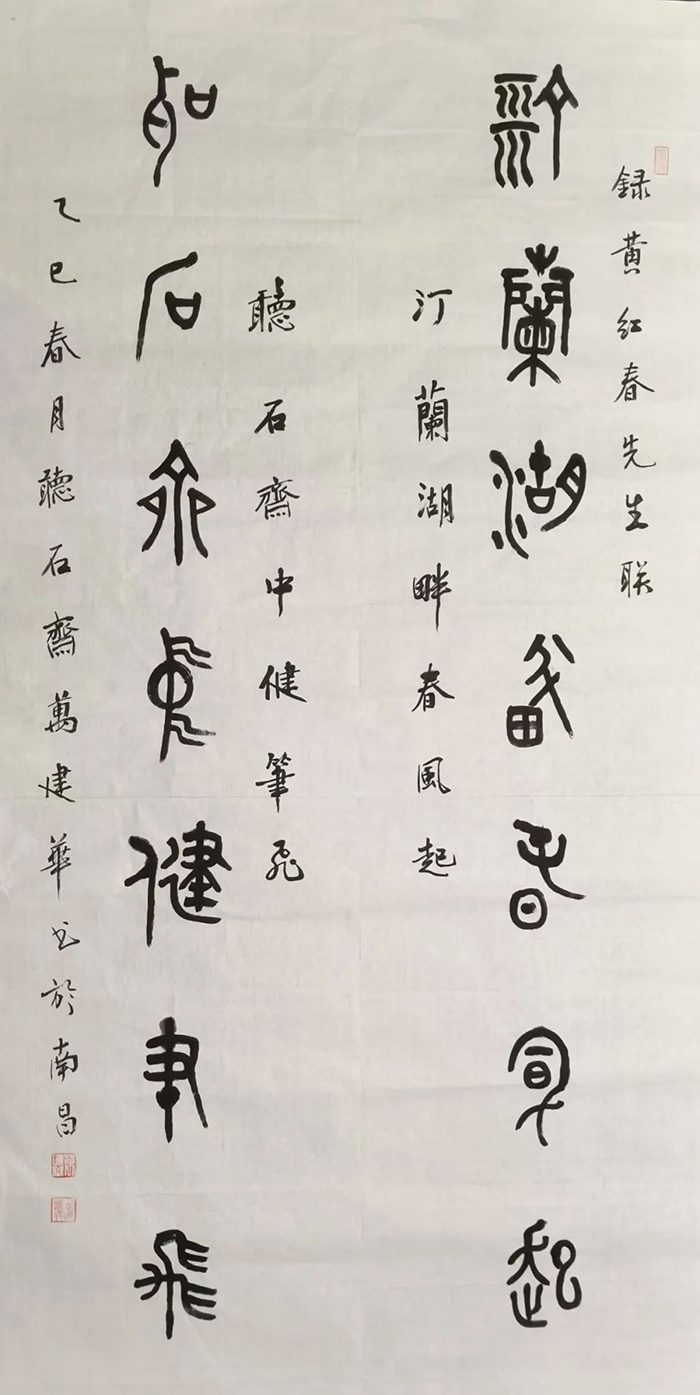 録黄红春先生联
汀蘭湖畔春風起
汀蘭湖畔春風起
聽石齋中健筆飛
聽石齋中健筆飛
乙巳春月聽石齋萬建華书於南昌